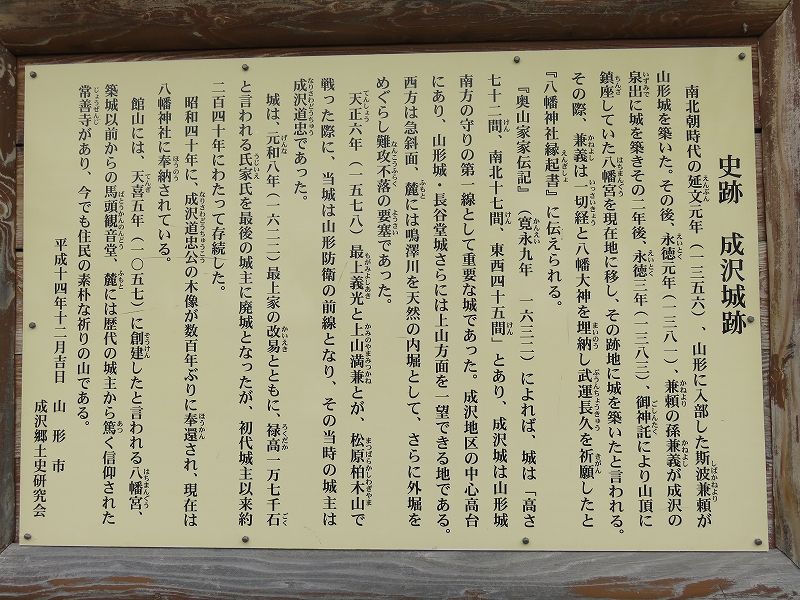 史跡　成沢城跡
南北朝時代の延文元年（一三五六）、山形に入部した斯波兼頼が
山形城を築いた。その後、永徳元年（一三八一）、兼頼の孫兼義が成沢の
泉出に城を築きその二年後、永徳三年（一三八三）、御神託により山頂に
鎮座していた八幡宮を現在地に移し、その跡地に城を築いたと言われる。
その際、兼義は一切経と八幡大神を埋納し武運長久を祈願したと
『八幡神社縁起書』に伝えられる。
『奥山家家伝記』（寛永九年　一六三二）によれば、城は「高さ
七十二間、南北十七間、東西四十五間」とあり、成沢城は山形城
南方の守りの第一線として重要な城であった。成沢地区の中心高台
にあり、山形城・長谷堂城さらには上山方面を一望できる地である。
西方は急斜面、麓には鳴澤川を天然の内堀として、さらに外堀を
めぐらし難攻不落の要塞であった。
天正六年（一五七八）最上義光と上山満兼とが、松原柏木山で
戦った際に、当城は山形防衛の前線となり、その当時の城主は
成沢道忠であった。
城は、元和八年（一六二二）最上家の改易とともに、禄高一万七千石
と言われる氏家氏を最後の城主に廃城となったが、初代城主以来約
二百四十年にわたって存続した。
昭和四十年に、成沢道忠公の木像が数百年ぶりに奉還され、現在は
八幡神社に奉納されている。
館山には、天喜五年（一〇五七）に創建したと言われる八幡宮、
築城以前からの馬頭観音堂、麓には歴代の城主から篤く信仰された
常善寺があり、今でも住民の素朴な祈りの山である。
平成十四年十二月吉日　山形市
成沢郷土史研究会